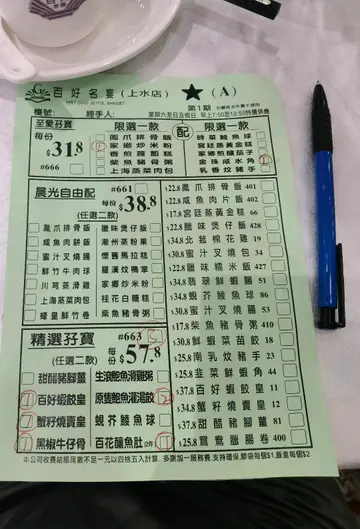 百好名宴(上水店) ★ (A)
VERY GOOD JOYCE, BANQUET
檯號: 經手人: 第1期
星期六至日及假日 早上7:00至10:55特價供應
至愛孖寶
每份
$31.8
#666
限選一款
鳳爪排骨飯
家鄉炒米粉
香煎蘿蔔糕
柴魚豬骨粥
上海蒸菜肉包
配
限選一款
時菜鯪魚球
宮廷蒸黃金糕
家鄉煎釀茄子
金珠咸水角
乳香炆豬手
晨光自由配
(任選二款)
#661
每份 $38.8
鳳爪排骨飯 臘味煲仔飯
咸魚肉餅飯 潮州蒸粉果
蜜汁叉燒腸 懷舊馬拉糕
鮮竹牛肉球 羅漢炆鴨掌
川耳蒸滑雞 家鄉炒米粉
上海蒸菜肉包 桂花白糖糕
蠔皇鮮竹卷 柴魚豬骨粥
精選孖寶
(任選二款)
#663
每份 $57.8
甜醋豬腳薑 生滾鮑魚滑雞粥
百好蝦餃皇 原隻鮑魚灌湯餃
蟹籽燒賣皇 蜆芥鯪魚球
黑椒牛仔骨 百花釀魚肚(2件)
$22.8 鳳爪排骨飯 401
$22.8 咸魚肉片飯 402
$17.8 宮廷蒸黃金糕 66
$22.8 臘味煲仔飯 428
$34.8 北菰棉花雞 19
$30.8 蜜汁叉燒包 34
$22.8 臘味糯米飯 427
$34.8 翡翠鮮蝦腸 51
$34.8 蜆芥鯪魚球 86
$30.8 蜜汁叉燒腸 53
$17.8 柴魚豬骨粥 410
$30.8 鮮蝦菜苗餃 18
$25.8 南乳炆豬手 23
$25.8 韭菜鮮蝦角 44
$37.8 百好蝦餃皇 11
$34.8 蟹籽燒賣皇 12
$37.8 甜醋豬腳薑 81
$25.8 鴛鴦臘腸卷 400
本公司收費結賬尾數不足一元以四捨五入計算。多謝加一服務費.支持環保,膠袋每個$1,飯盒每個$2